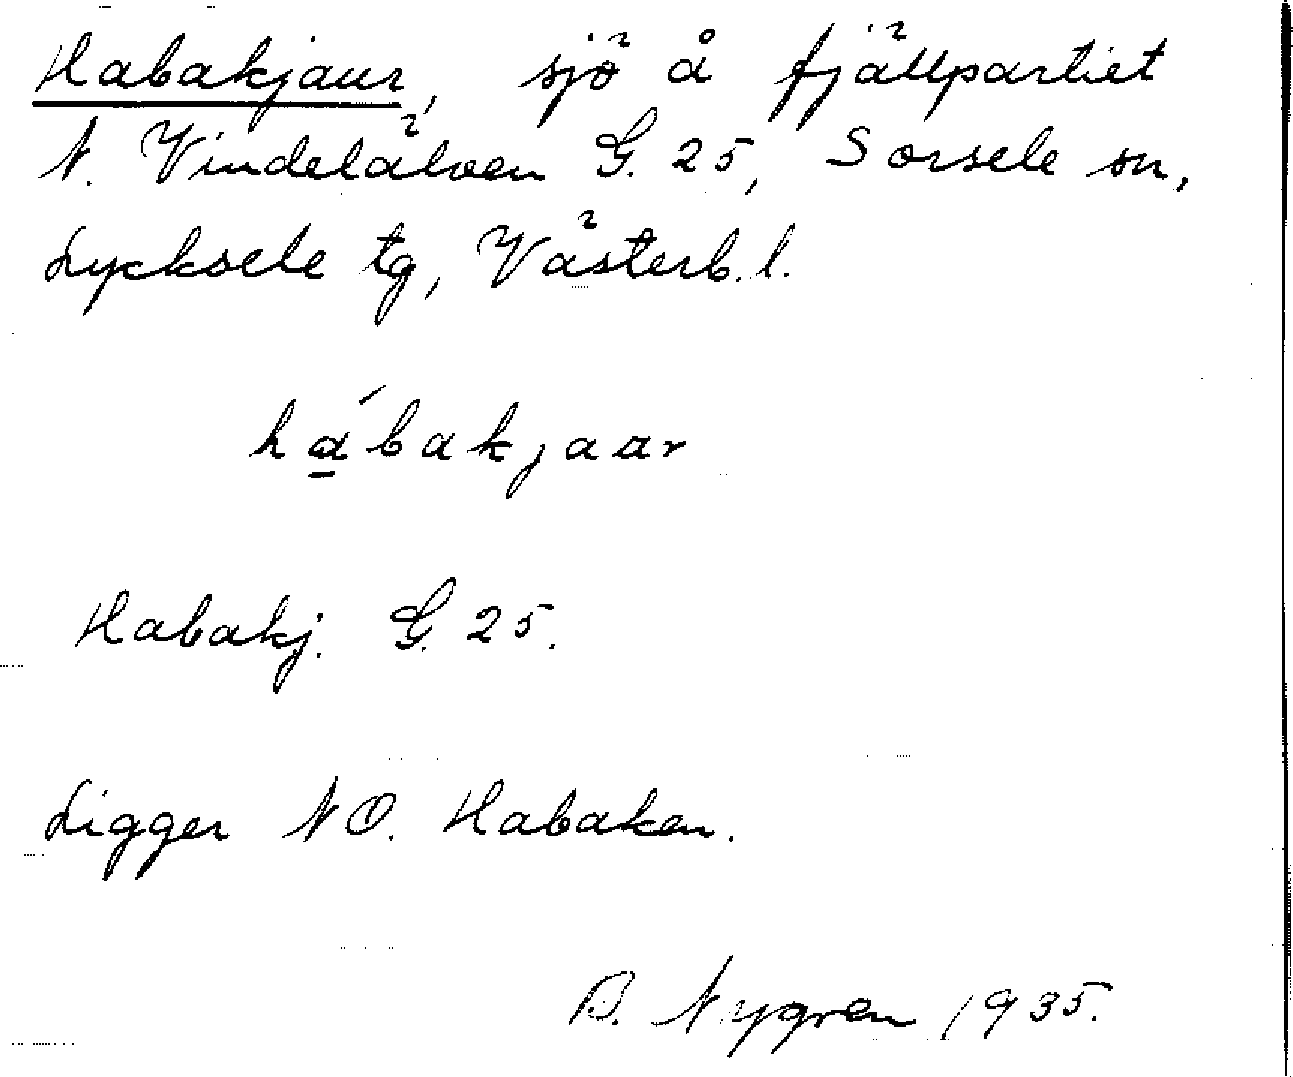 Habakjaur, sjö å fjällpartiet
N. Vindelälven G. 25, Sorsele sn,
Lycksele tg, Västerb. l.
há̱bakjaar
Habakj. G. 25.
Ligger NO. Habaken.
B. Nygren 1935.